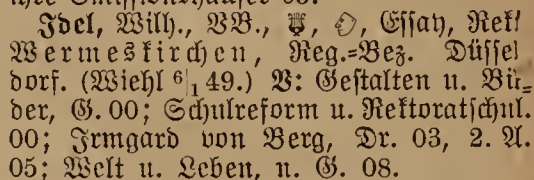 Idel, Wilh., VB., Essay, Rekt
Wermeskirchen, Reg.=Bez. Düssel
dorf. (Wiehl 6|1 49.) V: Gestalten u. Bil=
der, G. 00; Schulreform u. Rektoratschul.
00; Irmgard von Berg, Dr. 03, 2. A.
05; Welt u. Leben, n. G. 08.